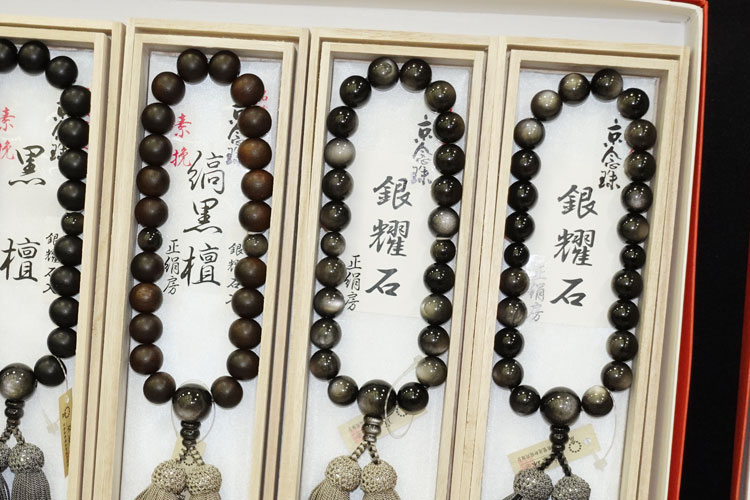 素
黒檀
京念珠
素挽
縞黒檀
銀耀石
正絹房
京念珠
銀耀石
正絹房
京念珠
銀耀石
正絹房